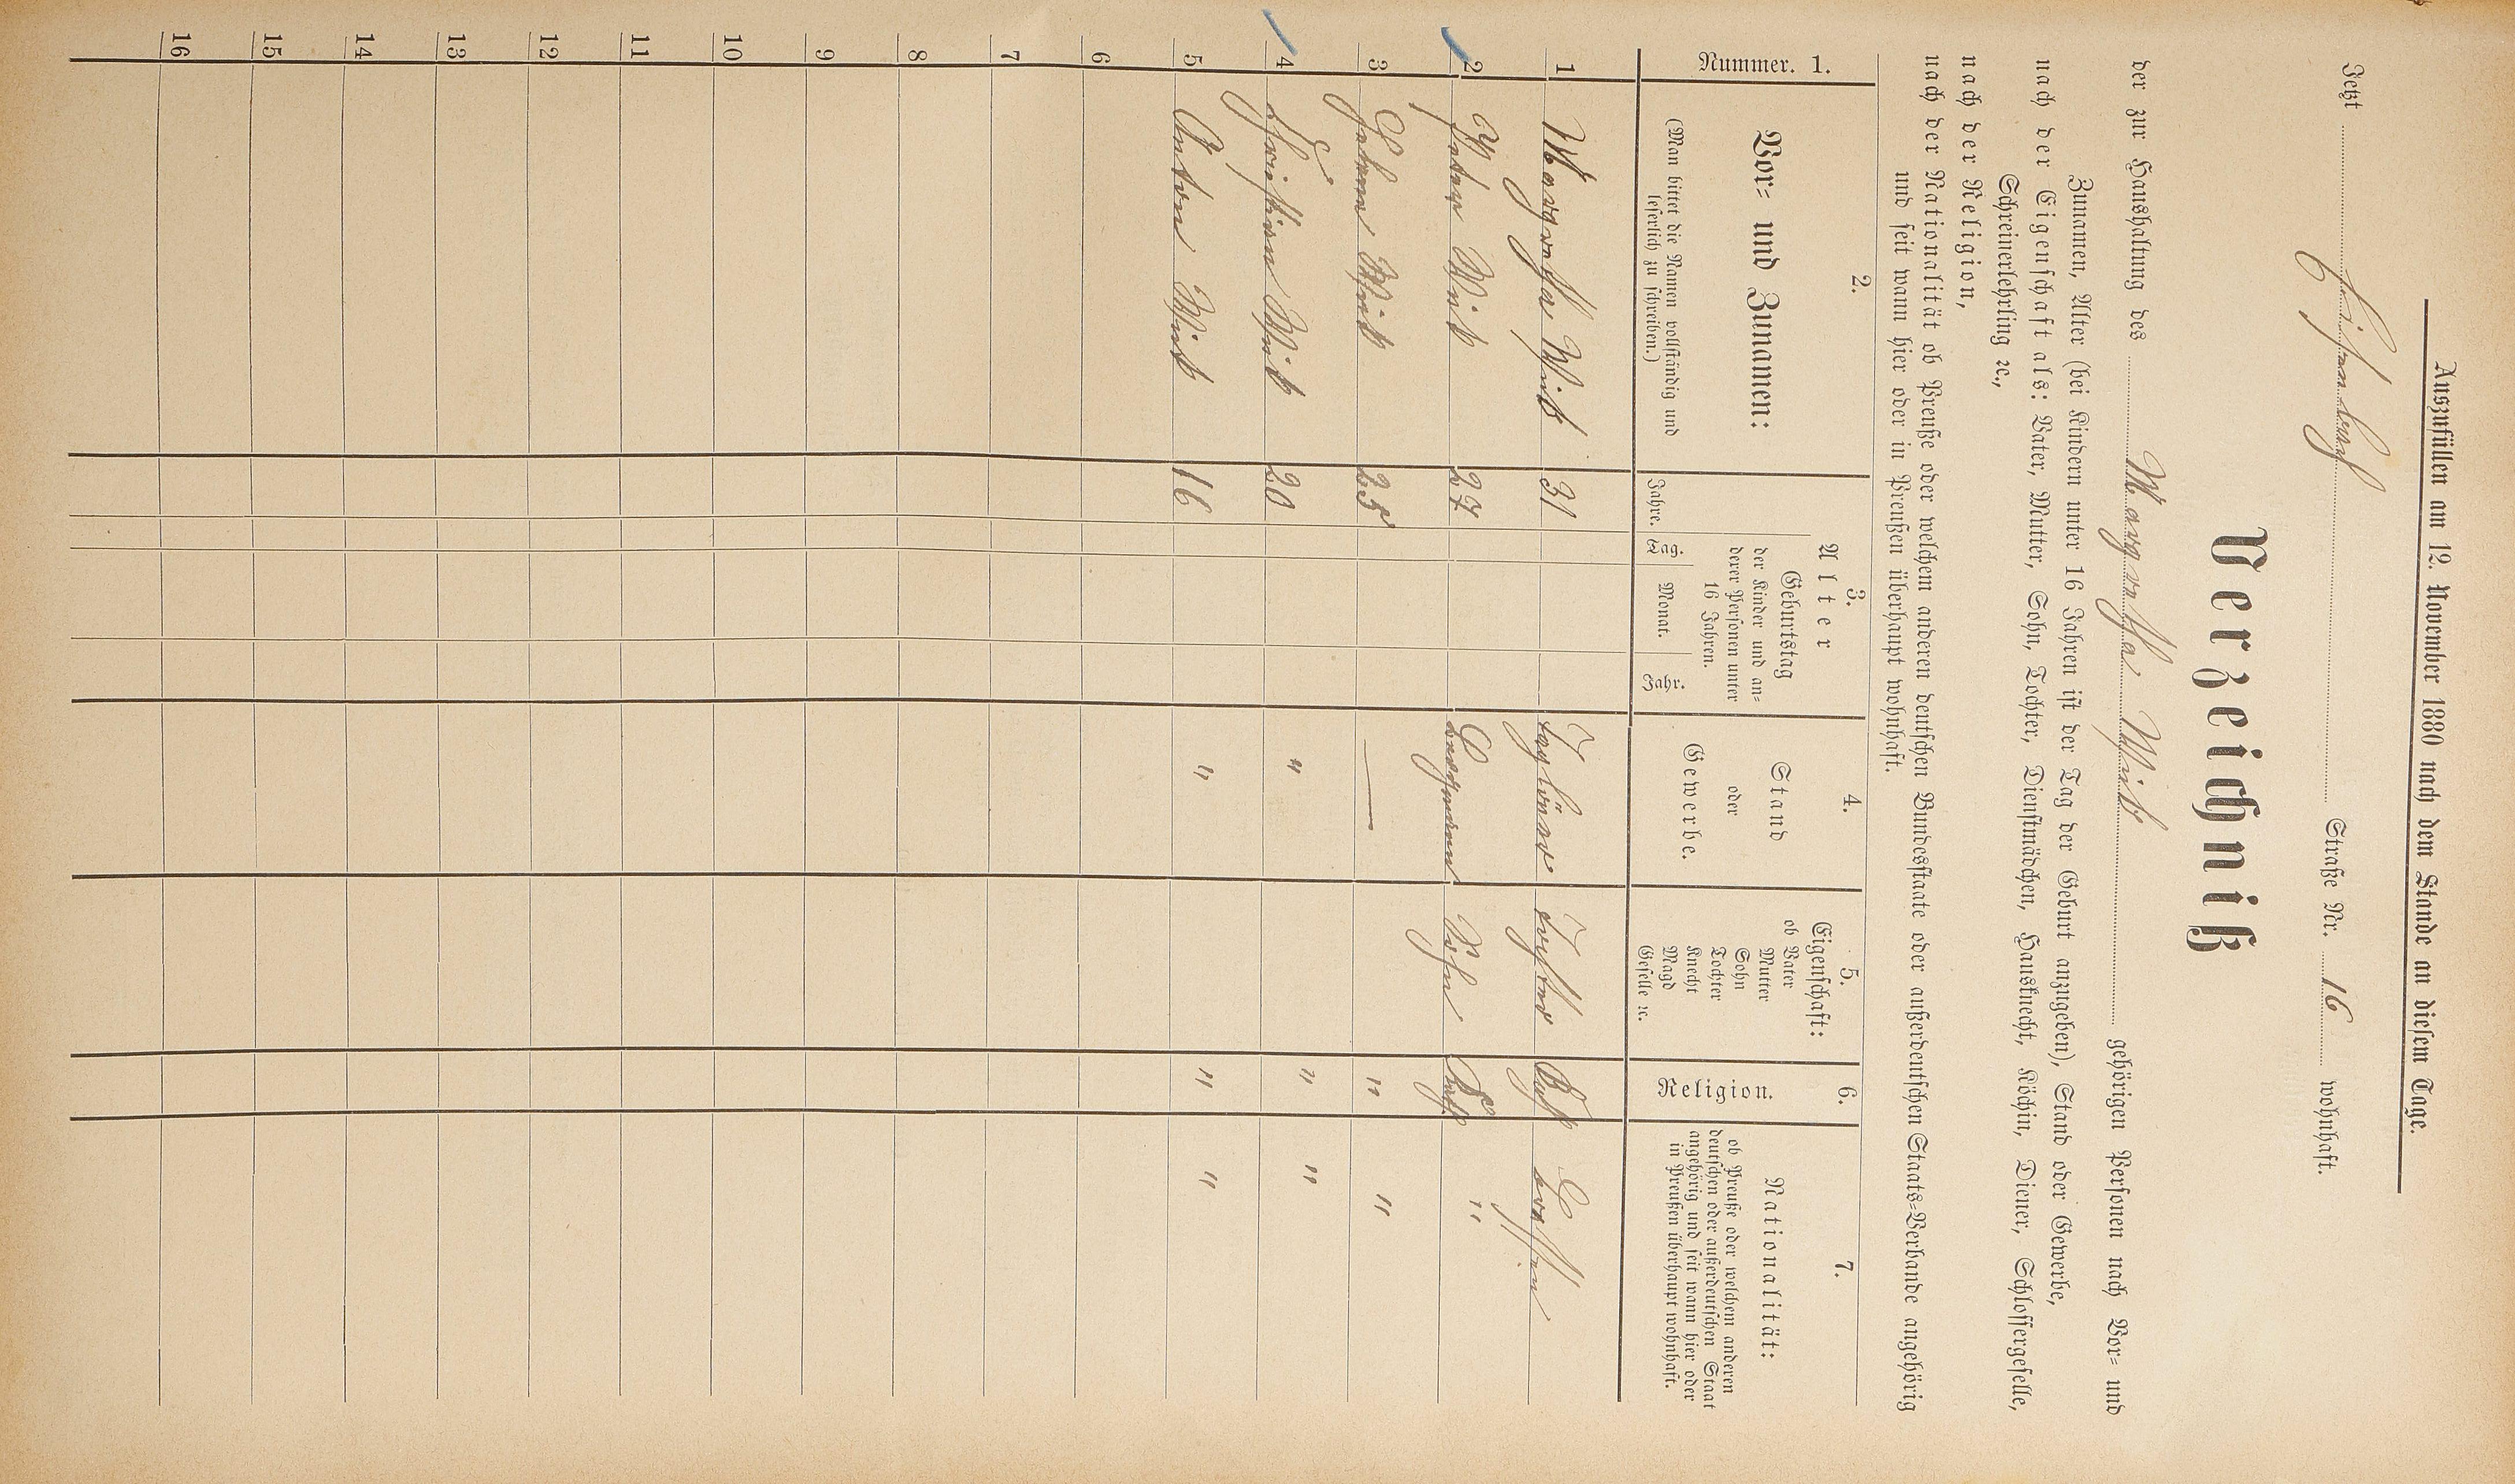 Auszufüllen am 12. November 1880 nach dem Stande an diesem Tage.
Jetzt Straße Nr. 16 wohnhaft.
Verzeichniß
der zur Haushaltung des Margretha gehörigen Personen nach Vor- und
Zunamen, Alter (bei Kindern unter 16 Jahren ist der Tag der Geburt anzugeben), Stand oder Gewerbe,
nach der Eigenschaft als: Vater, Mutter, Sohn, Tochter, Dienstmädchen, Hausknecht, Köchin, Diener, Schlossergeselle,
Schreinerlehrling ꝛc.,
nach der Religion,
nach der Nationalität ob Preuße oder welchem anderen deutschen Bundesstaate oder außerdeutschen Staats-Verbande angehörig
und seit wann hier oder in Preußen überhaupt wohnhaft.
Nummer. 1.
2.
Vor- und Zunamen:
(Man bittet die Namen vollständig und
leserlich zu schreiben.)
3.
Alter
Jahre.
Geburtstag
der Kinder und an-
derer Personen unter
16 Jahren.
Tag. Monat. Jahr.
4.
Stand
oder
Gewerbe.
5.
Eigenschaft:
ob Vater
Mutter
Sohn
Tochter
Knecht
Magd
Geselle ꝛc.
6.
Religion.
7.
Nationalität:
ob Preuße oder welchem anderen
deutschen oder außerdeutschen Staat
angehörig und seit wann hier oder
in Preußen überhaupt wohnhaft.
1 Margretha 31 Tochter Kath
2 Peter 27 Sohn Kath. "
3 25 — " "
4 Christian 20 " " "
5 Anton 16 " " "
6
7
8
9
10
11
12
13
14
15
16